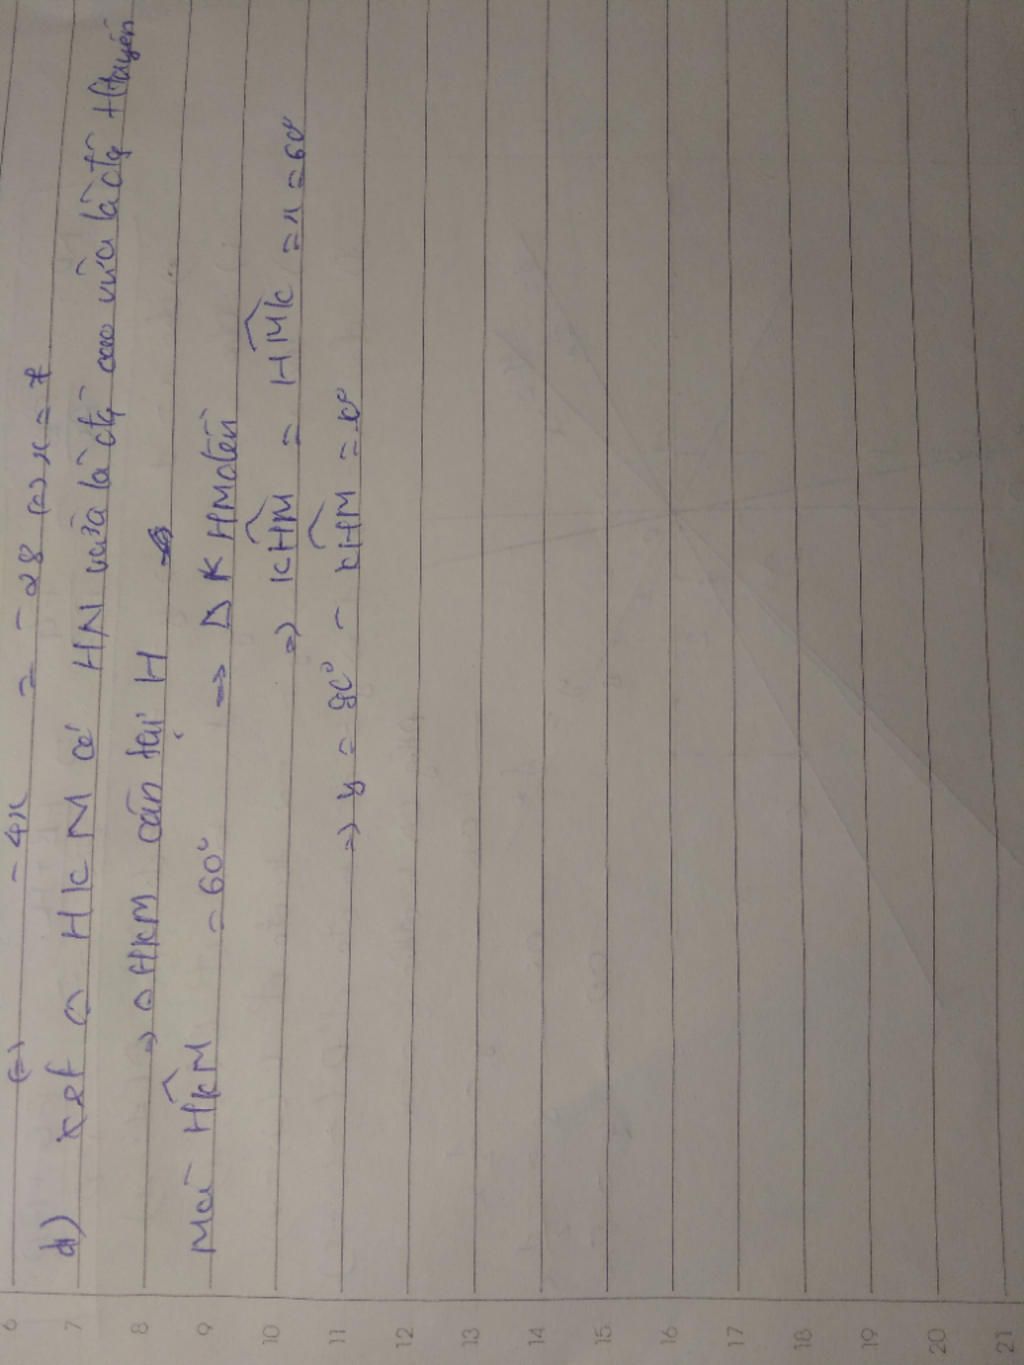 (=) -4x = -28 (=) x = 7
d) xét △ HKM có HN vừa là đg cao vừa là đg tuyến
=> △ HKM cân tại H
Mà HKM = 60° -> △ KHM đều
=> KHM = HMK = x = 60°
=> y = 90° - KHM = 30°
6
7
8
9
10
11
12
13
14
15
16
17
18
19
20
21